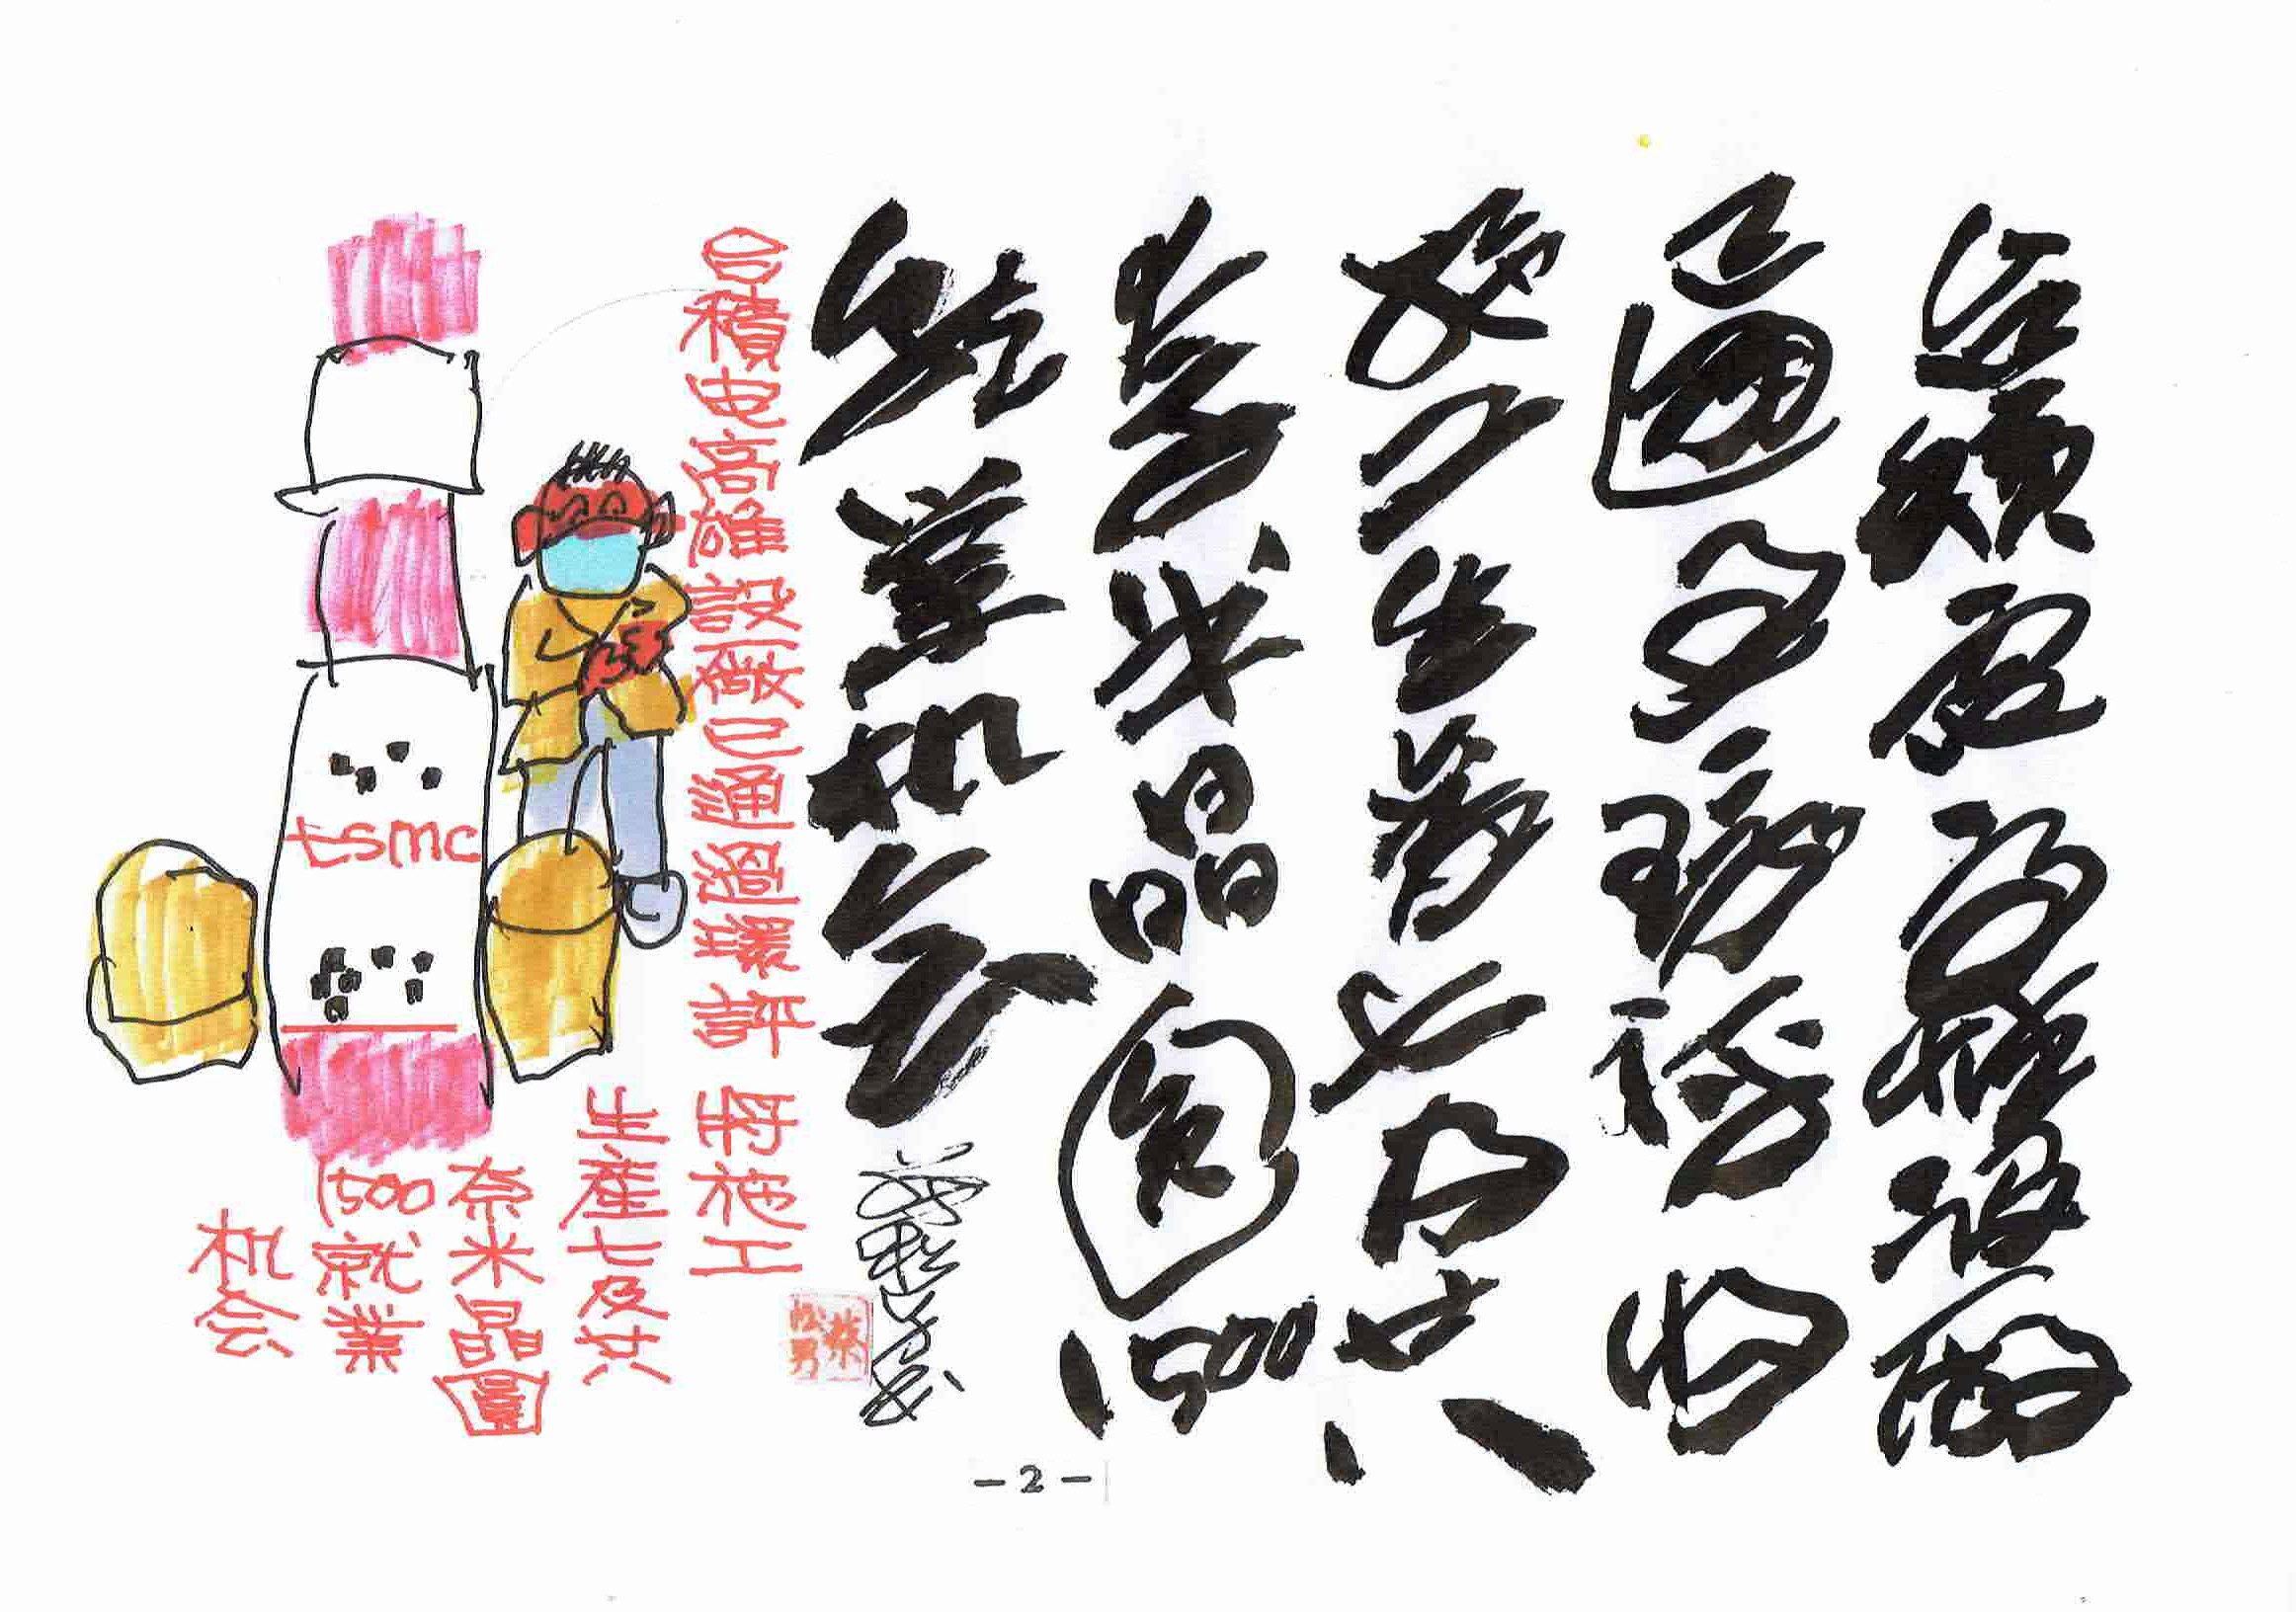 台積電高雄設廠
已通过環評將
施工生產七及廿八
奈米晶圆1500
就業机会
蔡松男
台積电高雄設廠已通過環評 將施工
生產七及廿八
奈米晶圓
1500就業
机会
tsmc
蔡松男
-2-